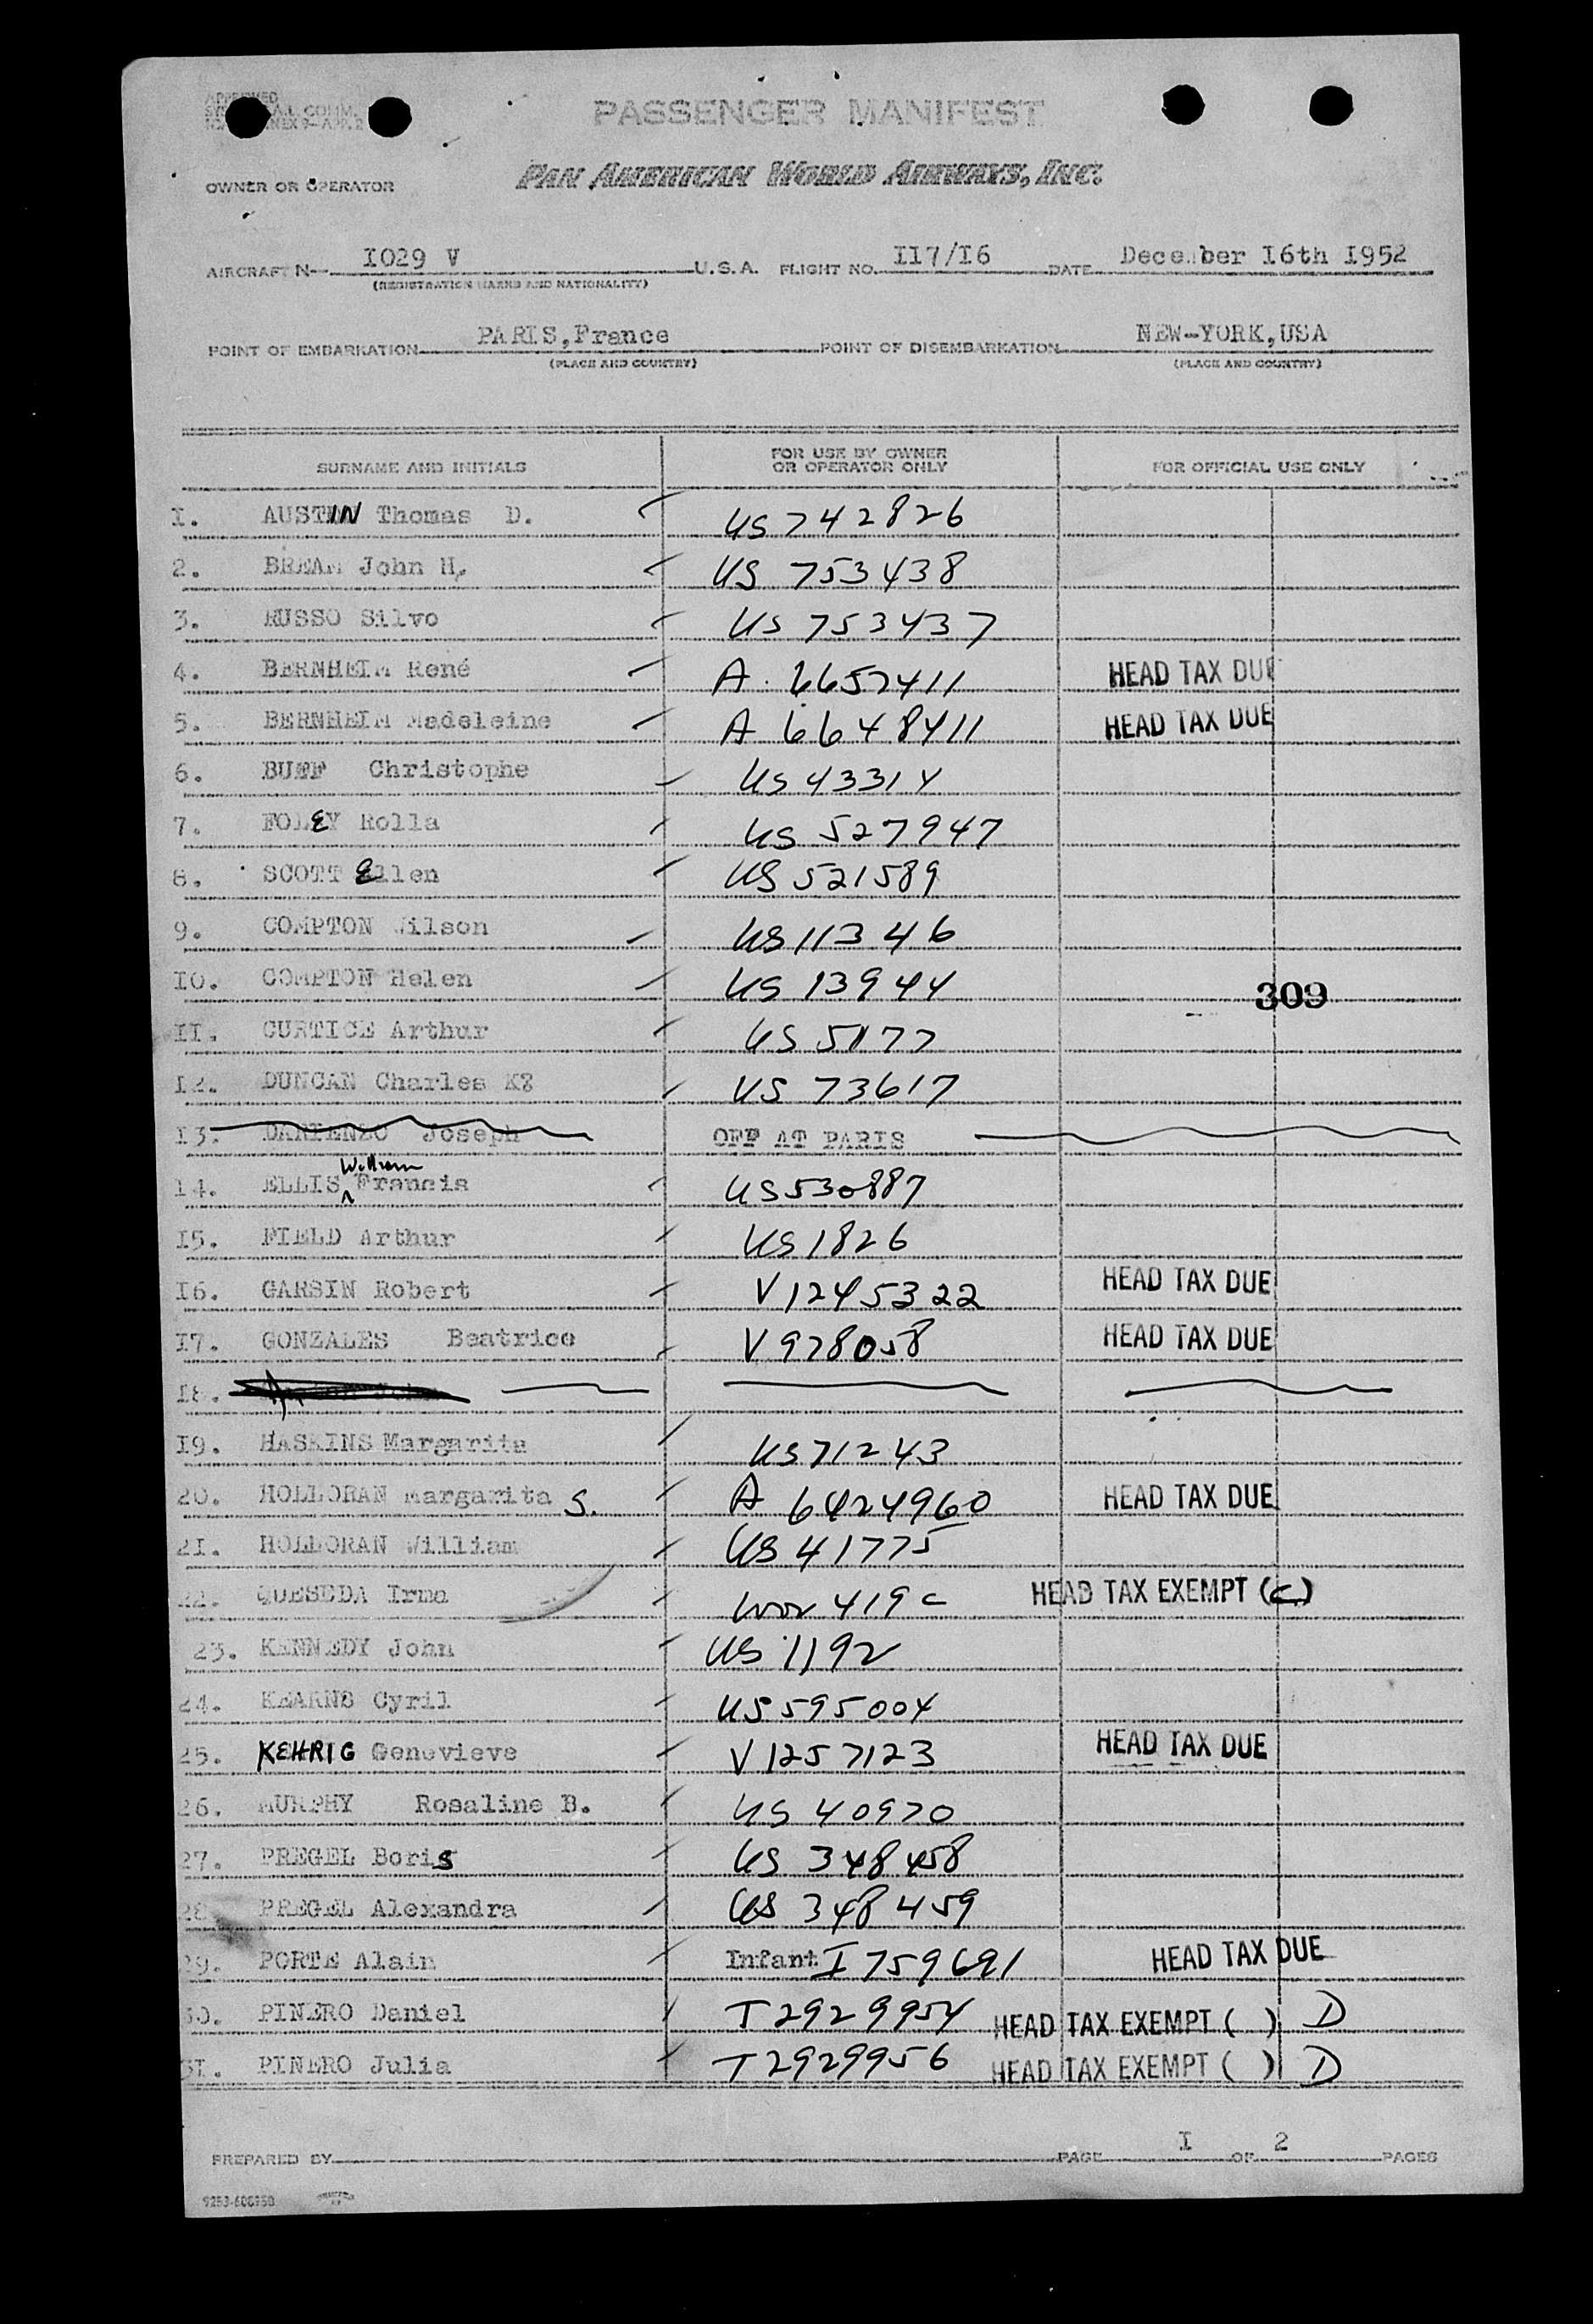 APPROVED
PASSENGER MANIFEST
OWNER OR OPERATOR PAN AMERICAN WORLD AIRWAYS, INC.
AIRCRAFT N— I029 V U.S.A. FLIGHT NO. II7/I6 DATE December I6th I952
(REGISTRATION MARKS AND NATIONALITY)
POINT OF EMBARKATION PARIS,France POINT OF DISEMBARKATION NEW-YORK,USA
(PLACE AND COUNTRY) (PLACE AND COUNTRY)
SURNAME AND INITIALS FOR USE BY OWNER OR OPERATOR ONLY FOR OFFICIAL USE ONLY
I. AUSTIN Thomas D. US 742826
2. BREAM John H. US 753438
3. RUSSO Silvo US 753437
4. BERNHEIM René A 6657411 HEAD TAX DUE
5. BERNHEIM Madeleine A 6648411 HEAD TAX DUE
6. BUFF Christophe US 43314
7. FOLEY Rolla US 527947
8. SCOTT Ellen US 521589
9. COMPTON Wilson US 11346
IO. COMPTON Helen US 13944
309
II. CURTICE Arthur US 5177
I2. DUNCAN Charles K% US 73617
I3. DANIENZO Joseph OFF AT PARIS
William
I4. ELLIS Francis US 530887
I5. FIELD Arthur US 1826
I6. GARSIN Robert V 1245322 HEAD TAX DUE
I7. GONZALES Beatrice V 978058 HEAD TAX DUE
I8.
I9. HASKINS Margarita US 71243
20. HOLLORAN Margarita S. A 6424960 HEAD TAX DUE
2I. HOLLORAN William US 41775
22. QUESEDA Irma 419 C HEAD TAX EXEMPT (C)
23. KENNEDY John US 1192
24. KEARNS Cyril US 595004
25. KEHRIG Genevieve V 1257123 HEAD TAX DUE
26. MURPHY Rosaline B. US 40970
27. PREGEL Boris US 348458
28. PREGEL Alexandra US 348459
29. PORTE Alain Infant I 759691 HEAD TAX DUE
30. PINERO Daniel T 2929954 HEAD TAX EXEMPT ( ) D
3I. PINERO Julia T 2929956 HEAD TAX EXEMPT ( ) D
PREPARED BY PAGE I OF 2 PAGES